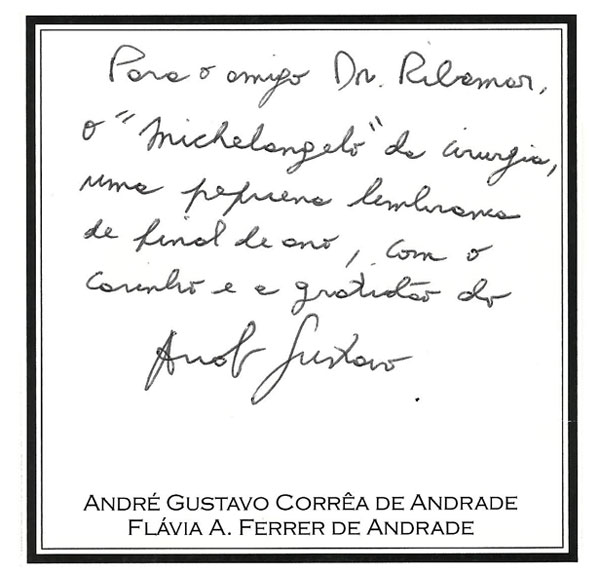 Para o amigo Dr. Ribamar,
o "Michelangelo" da cirurgia,
uma pequena lembrança
de final de ano, com o
carinho e a gratidão do
André Gustavo.
ANDRÉ GUSTAVO CORRÊA DE ANDRADE
FLÁVIA A. FERRER DE ANDRADE